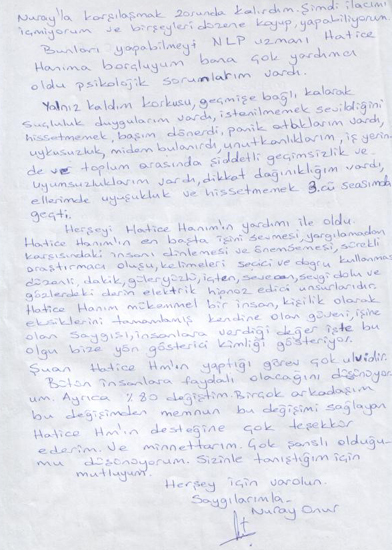 Nuray'la karşılaşmak zorunda kalırdım. Şimdi ilacımı
içmiyorum ve birşeyleri düzene koyup, yapabiliyorum
Bunları yapabilmeyi NLP uzmanı Hatice
Hanıma borçluyum bana çok yardımcı
oldu psikolojik sorunlarım vardı.
Yalnız kaldım korkusu, geçmişe bağlı kalarak
Suçluluk duygularım vardı, istenilmemek sevildiğini
hissetmemek, başım dönerdi, panik ataklarım vardı,
uykusuzluk, midem bulanırdı, unutkanlıklarım, iş yerin
de ve toplum arasında şiddetli geçimsizlik ve
uyumsuzluklarım vardı, dikkat dağınıklığım vardı,
ellerimde uyuşukluk ve hissetmemek 3.cü seasımda
geçti.
Herşeyi Hatice Hanım'ın yardımı ile oldu.
Hatice Hanım'ın en başta işini sevmesi, yargılamadan
karşısındaki insanı dinlemesi ve önemsemesi, sürekli
araştırmacı oluşu, kelimeleri seçici ve doğru kullanması
düzenli, dakik, güleryüzlü, içten, sevecen, sevgi dolu ve
gözlerdeki derin elektrik hipnoz edici unsurlarıdır.
Hatice Hanım mükemmel bir insan, kişilik olarak
eksiklerini tamamlamış kendine olan güveni, işine
olan Saygısı, insanlara verdiği değer işte bu
olgu bize yön gösterici kimliği gösteriyor.
Şuan Hatice Hm'ın yaptığı görev çok ulvidir.
Bütün insanlara faydalı olacağını düşünüyor
um. Ayrıca %80 değiştim. Birçok arkadaşım
bu değişimden memnun bu değişimi sağlayan
Hatice Hm'ın desteğine çok teşekkür
ederim. Ve minnettarım. Çok şanslı olduğu-
mu düşünüyorum. Sizinle tanıştığım için
mutluyum.
Herşey için varolun.
Saygılarımla.
Nuray Onur